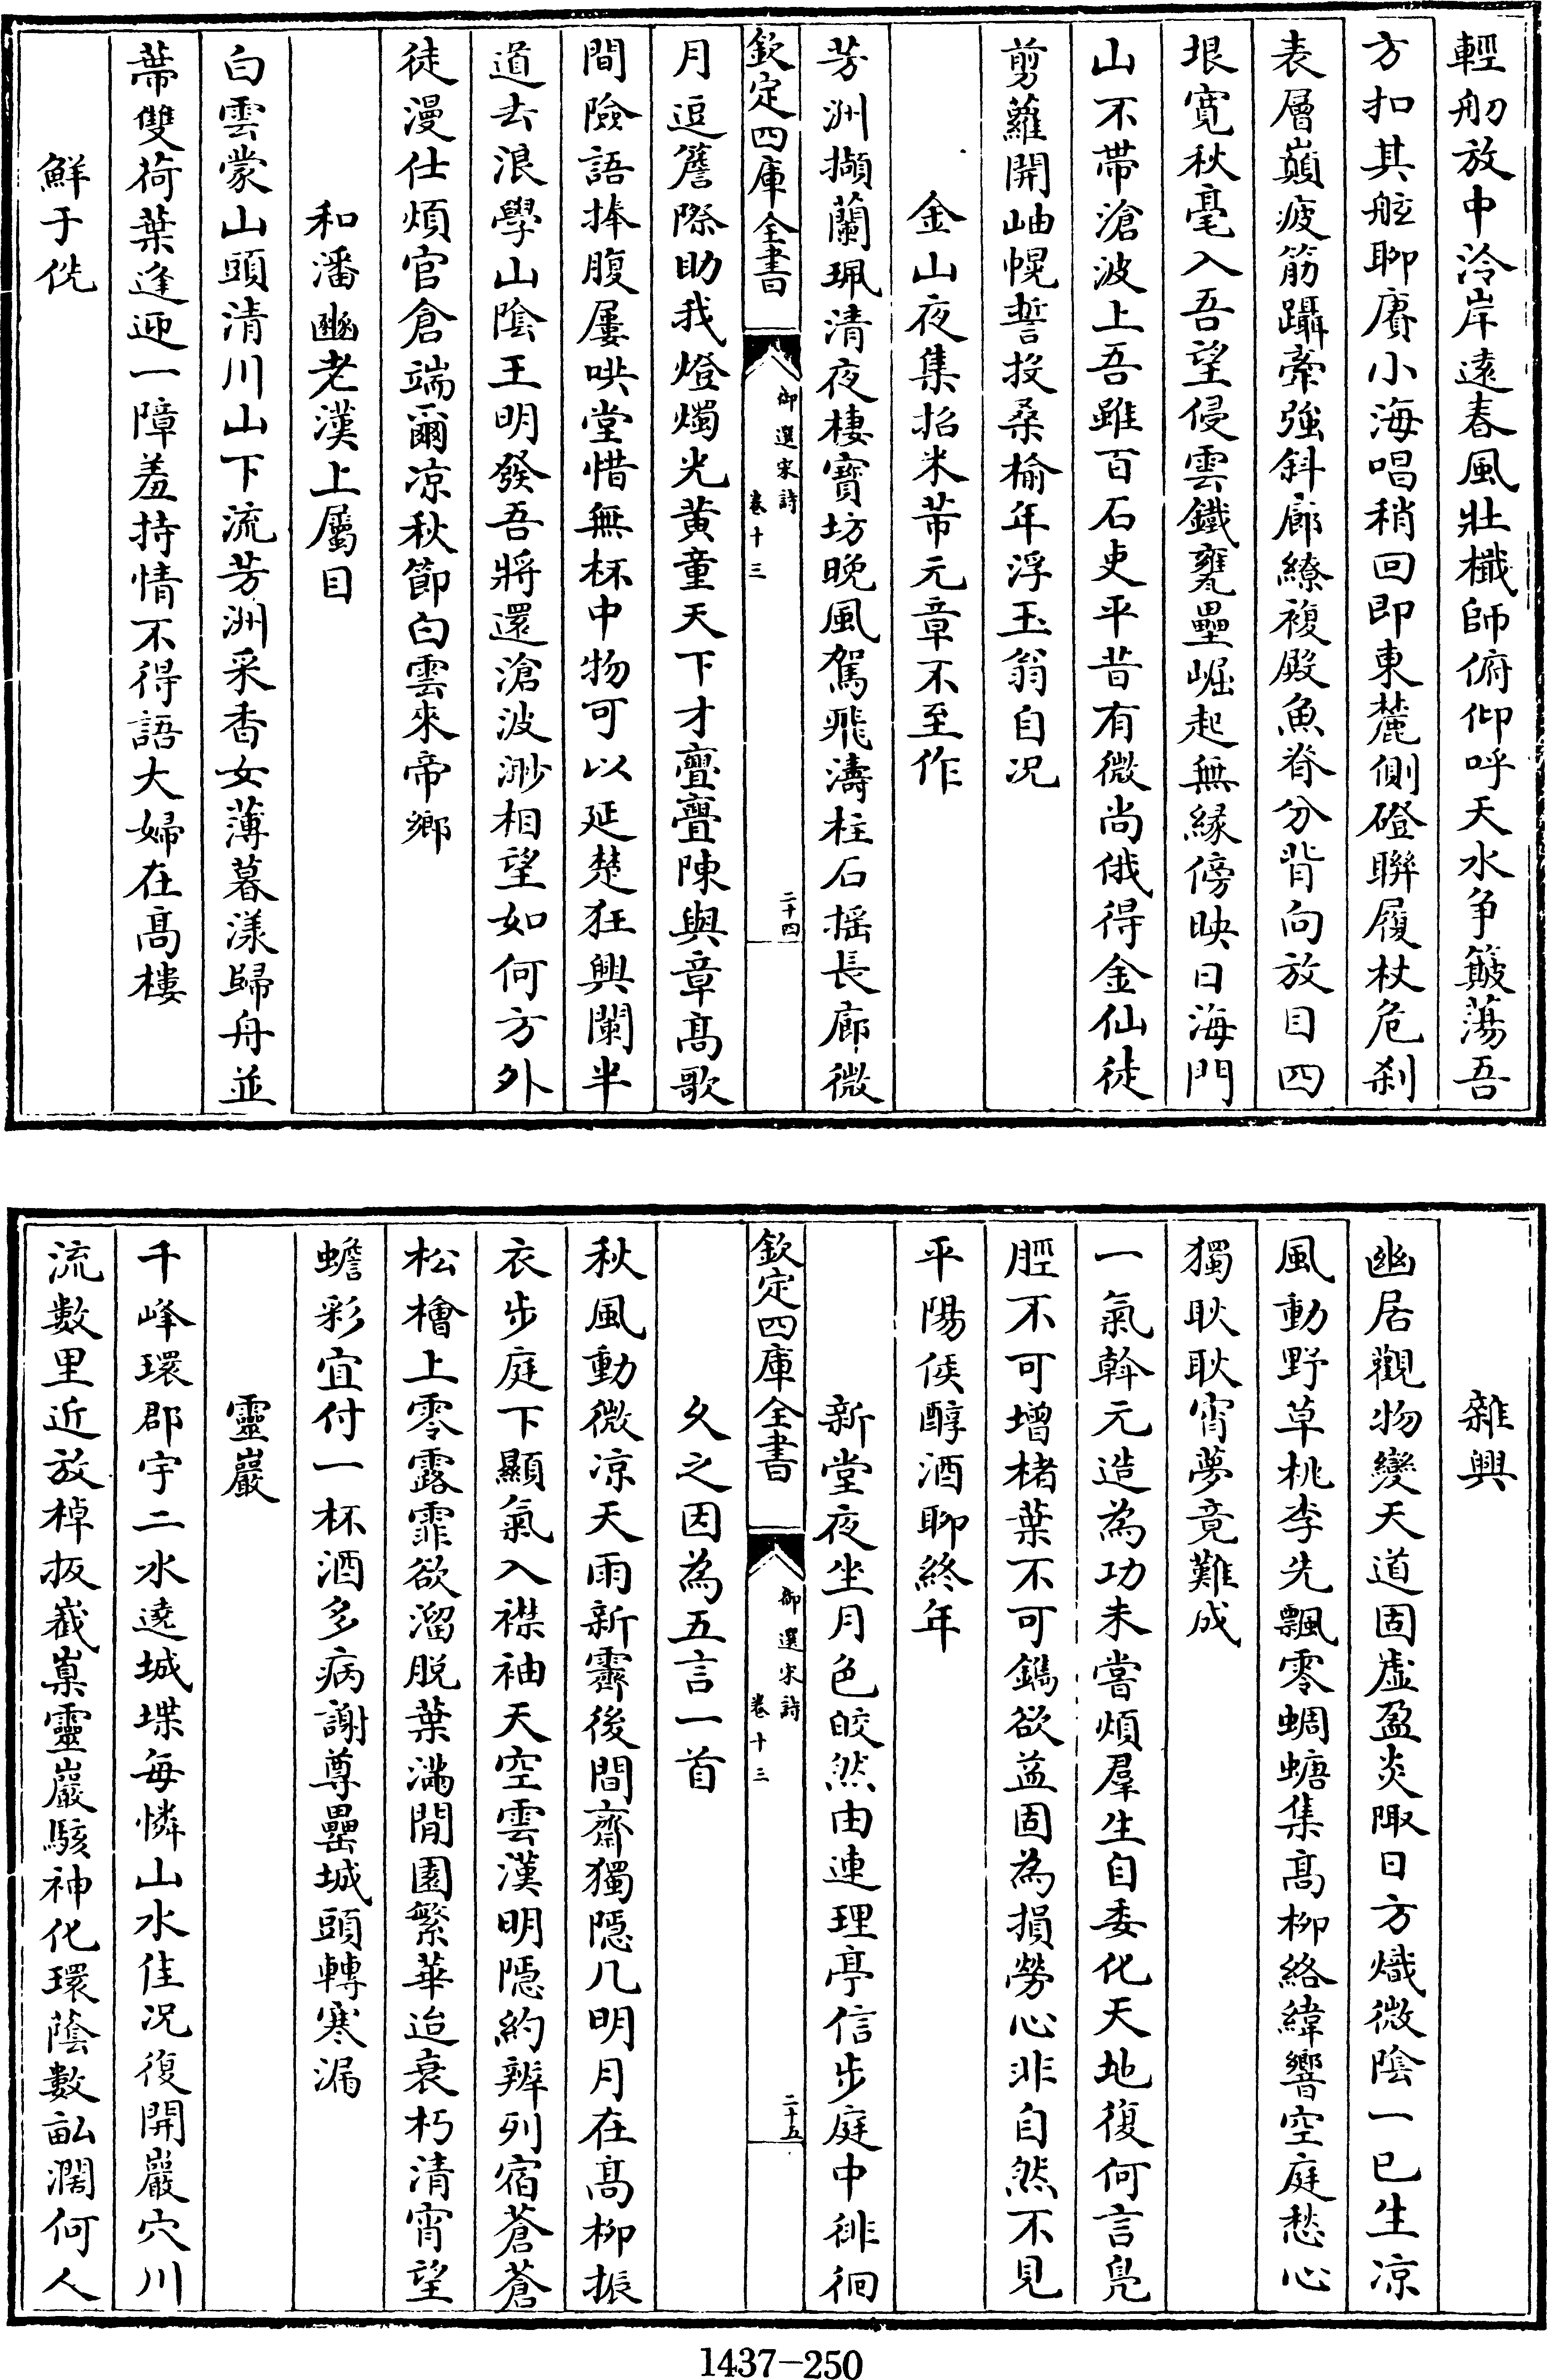 輕舠放中泠岸遠春風壯檝師俯仰呼天水争簸蕩吾
方扣其舷聊賡小海唱稍回即東麓側磴聯履杖危刹
表層巔疲筋躡牽強斜廊繚複殿魚脊分背向放目四
垠寛秋毫入吾望侵雲鐵甕壘崛起無縁傍映日海門
山不帶滄波上吾雖百石吏平昔有微尚俄得金仙徒
剪蘿開岫幌誓投桑榆年浮玉翁自况
金山夜集招米芾元章不至作
芳洲擷蘭珮清夜棲寶坊晚風駕飛濤柱石摇長廊微
欽定四庫全書
御選宋詩
卷十三
二十四
月逗簷隙助我燈燭光黄童天下才亹亹陳與章高歌
間險語捧腹屢哄堂惜無杯中物可以延楚狂興闌半
道去浪學山陰王明發吾將還滄波渺相望如何方外
徒漫仕煩官倉端爾凉秋節白雲來帝鄉
和潘幽老漢上屬目
白雲蒙山頭清川山下流芳洲采香女薄暮漾歸舟並
蔕雙荷葉逢迎一障羞持情不得語大婦在髙樓
鮮于侁
雜興
幽居觀物變天道固虚盈炎陬日方熾微陰一已生凉
風動野草桃李先飄零蜩螗集髙柳絡緯響空庭愁心
獨耿耿宵夢竟難成
一氣斡元造為功未嘗煩羣生自委化天地復何言鳧
脛不可增楮葉不可鐫欲益固為損勞心非自然不見
平陽侯醇酒聊終年
新堂夜坐月色皎然由連理亭信步庭中徘徊
欽定四庫全書
御選宋詩
卷十三
二十五
久之因為五言一首
秋風動微凉天雨新霽後間齋獨隱几明月在髙柳振
衣步庭下顥氣入襟袖天空雲漢明隱約辨列宿蒼蒼
松檜上零露霏欲溜脱葉滿閒園繁華迨衰朽清宵望
蟾彩宜付一杯酒多病謝尊罍城頭轉寒漏
靈巖
千峰環郡宇二水遶城堞每憐山水佳况復開巖穴川
流數里近放棹扳嶻嵲靈巖駭神化環蔭數畝濶何人
1437-250